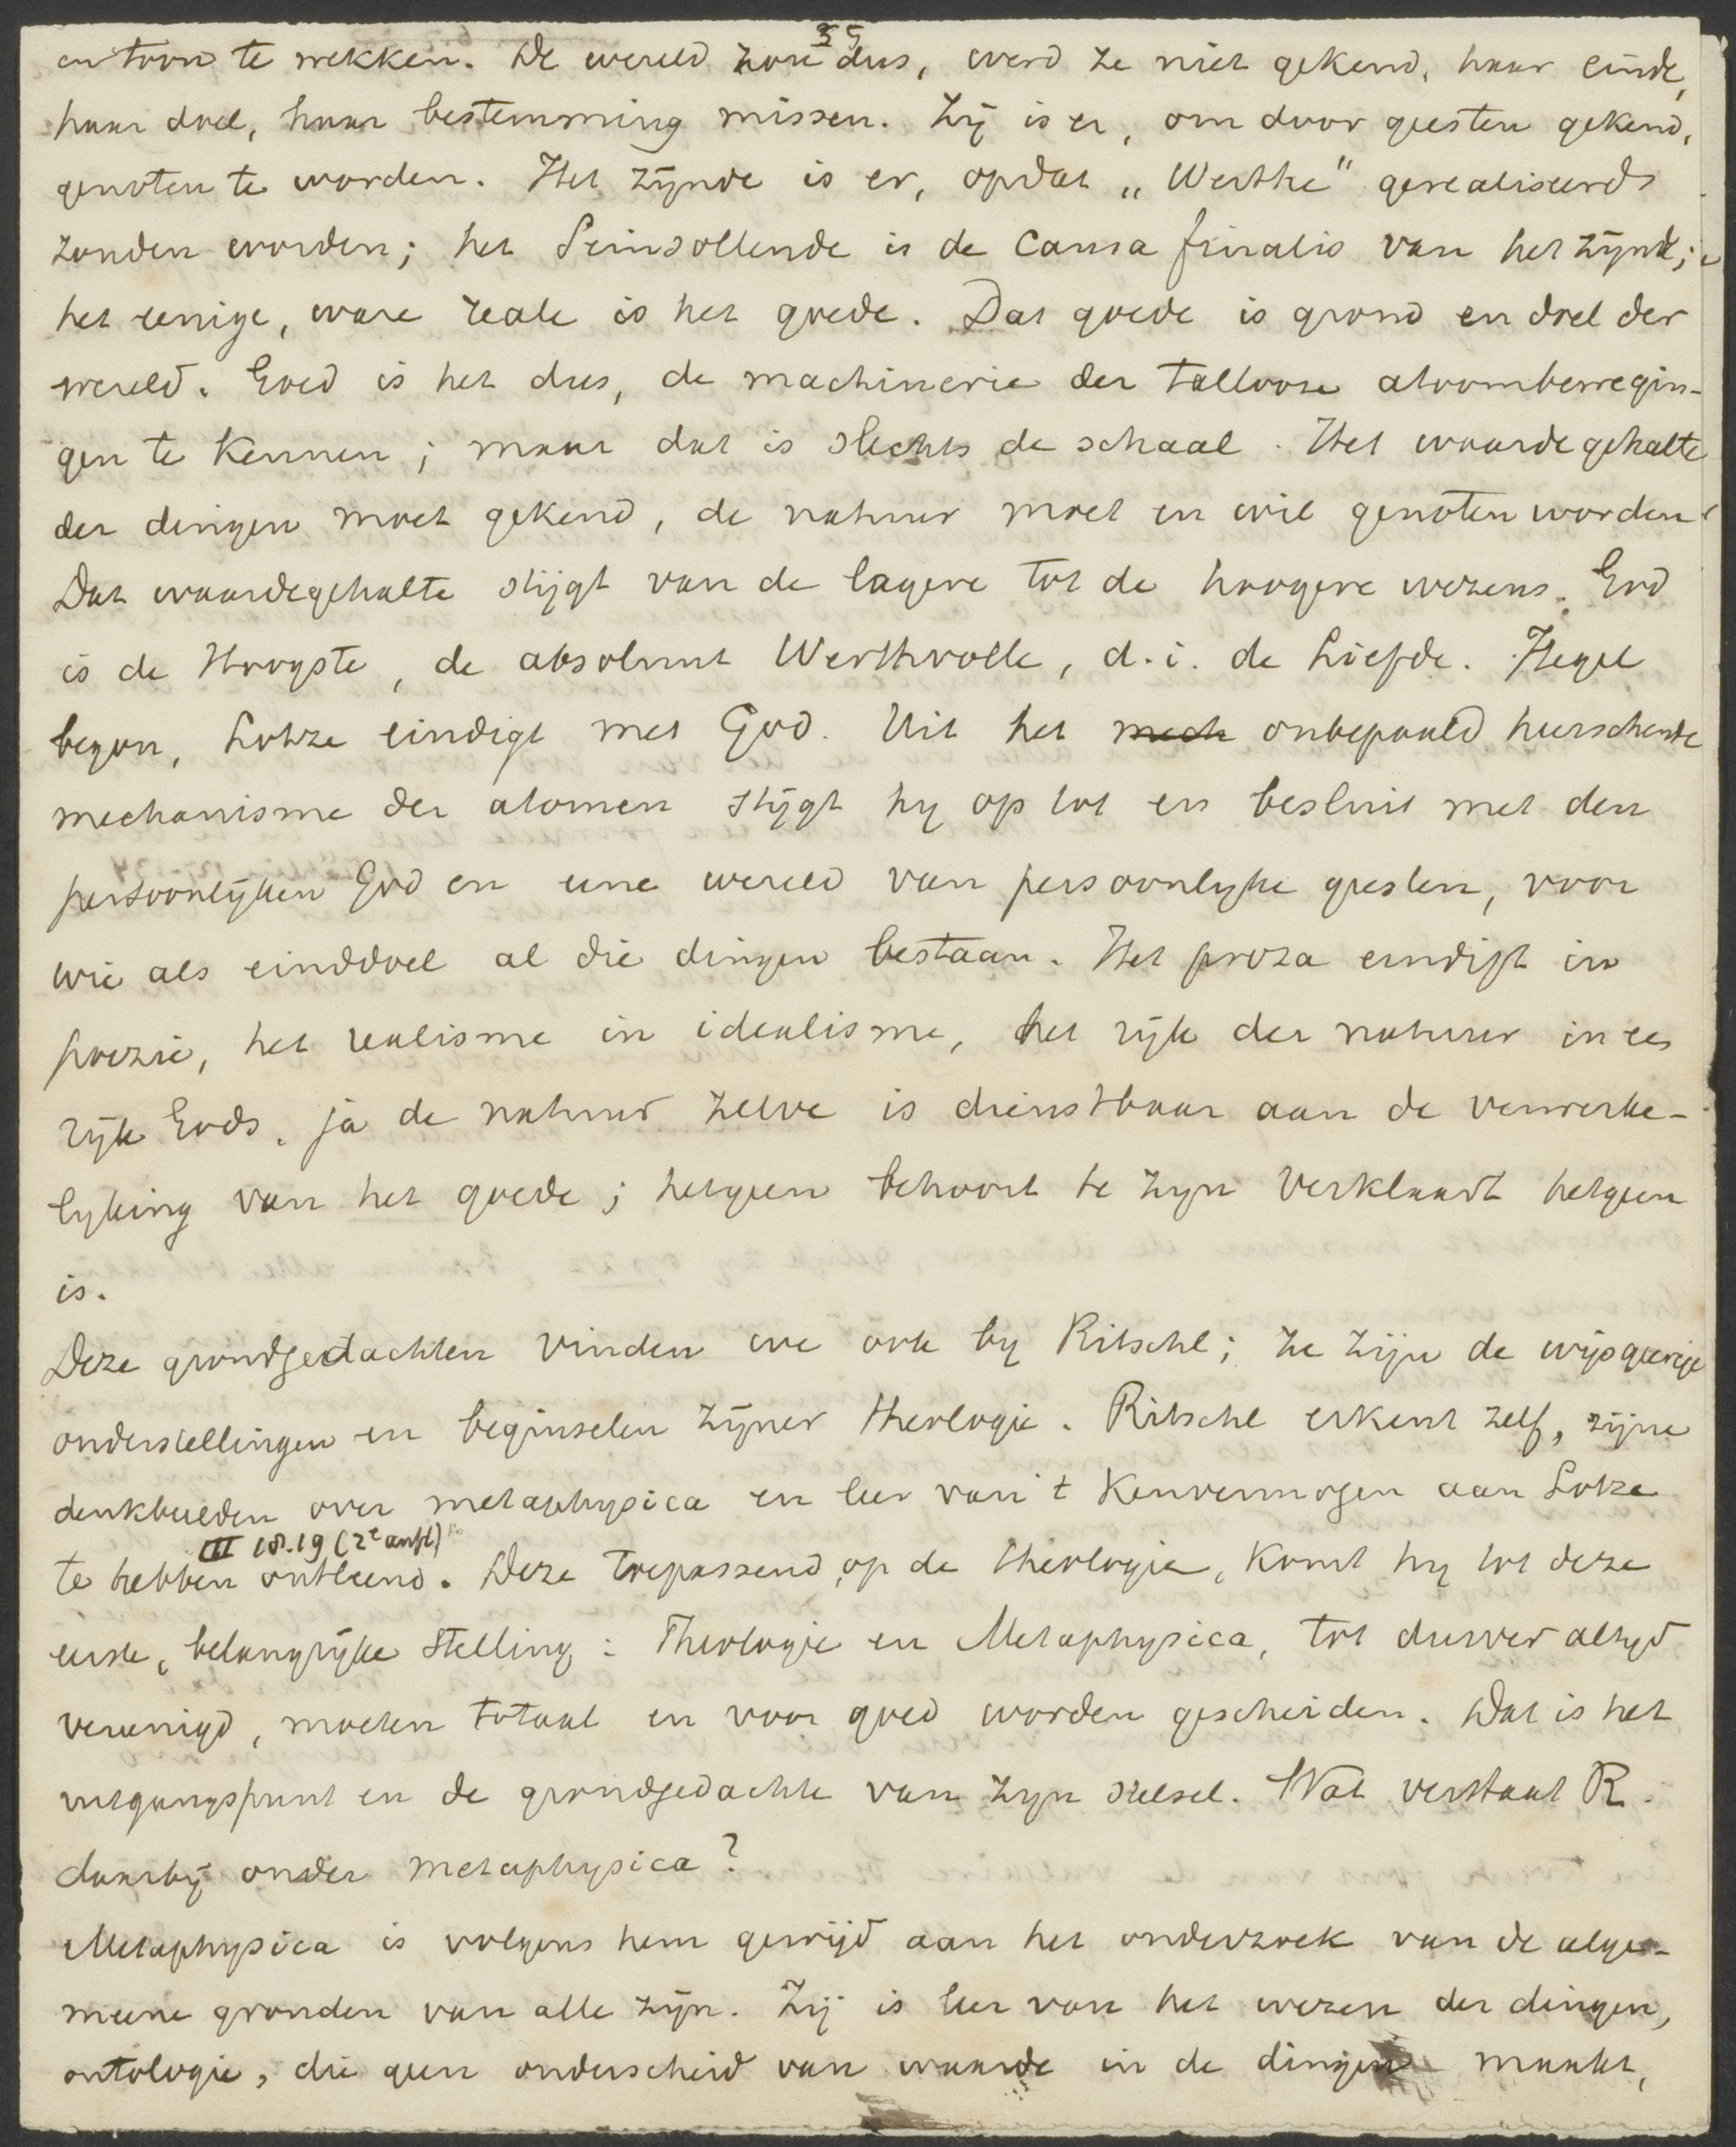 35
en toon te wekken. De wereld zou dus, werd ze niet gekend, haar einde,
haar doel, haar bestemming missen. Zij is er, om door geesten gekend,
genoten te worden. Het zijnde is er, opdat „Werthe" gerealiseerd
zouden worden; het Seinsollende is de causa finalis van het zijnde;
het eenige, ware reale is het goede. Dat goede is grond en doel der
wereld. Goed is het dus, de machinerie der tallooze atoombewegin-
gen te kennen; maar dat is slechts de schaal. Het waardegehalte
der dingen moet gekend, de natuur moet en wil genoten worden.
Dat waardegehalte stijgt van de lagere tot de hoogere wezens. God
is de Hoogste, de absoluut Werthvolle, d.i. de Liefde. Hegel
begon, Lotze eindigt met God. Uit het mech onbepaald heerschende
mechanisme der atomen stijgt hy op tot en besluit met den
persoonlijken God en eene wereld van persoonlyke geesten, voor
wie als einddoel al die dingen bestaan. Het proza eindigt in
poezie, het realisme in idealisme, het rijk der natuur in een
rijk Gods, ja de natuur zelve is dienstbaar aan de verwerke-
lyking van het goede; hetgeen behoort te zyn verklaart hetgeen
is.
Deze grondgedachten vinden we ook by Ritschl; ze zijn de wijsgeerige
onderstellingen en beginselen zijner theologie. Ritschl erkent zelf, zijne
denkbeelden over metaphysica en leer van 't kenvermogen aan Lotze
III 18.19 (2e aufl)
te hebben ontleend. Deze toepassend op de theologie, komt hy tot deze
eerste, belangrijke stelling: Theologie en Metaphysica, tot dusver altyd
vereenigd, moeten totaal en voor goed worden gescheiden. Dat is het
uitgangspunt en de grondgedachte van zyn stelsel. Wat verstaat R.
daarbij onder metaphysica?
Metaphysica is volgens hem gewijd aan het onderzoek van de alge-
meene gronden van alle zijn. Zij is leer van het wezen der dingen,
ontologie, die geen onderscheid van waarde in de dingen maakt,